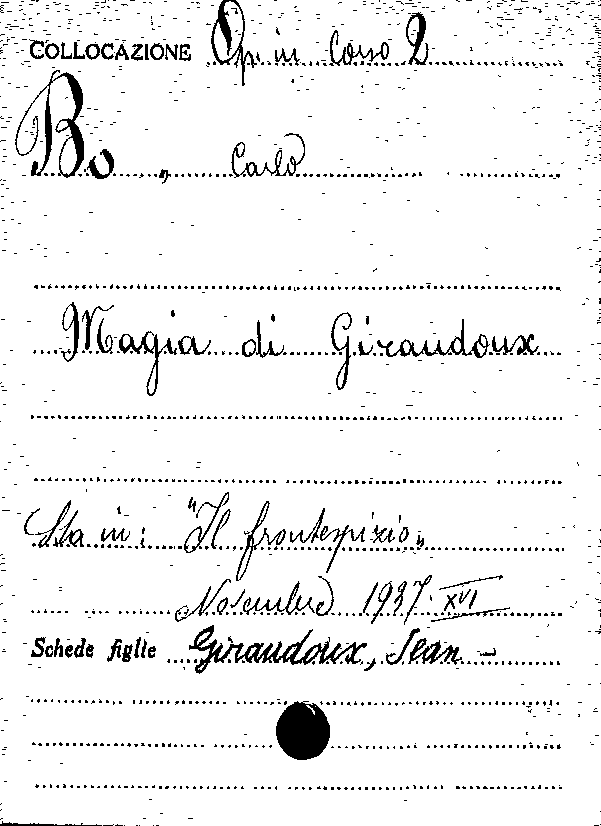 COLLOCAZIONE Op. in Corso 2
Bo, Carlo
Magia di Giraudoux
Sta in: "Il frontespizio„
Novembre 1937. XVI
Schede figlie Giraudoux, Jean -